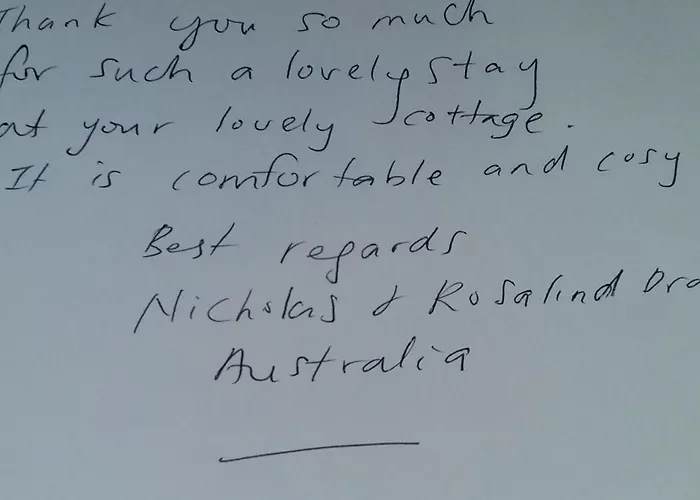 Thank you so much
for such a lovely stay
at your lovely cottage.
It is comfortable and cosy
Best regards
Nicholas & Rosalind
Australia